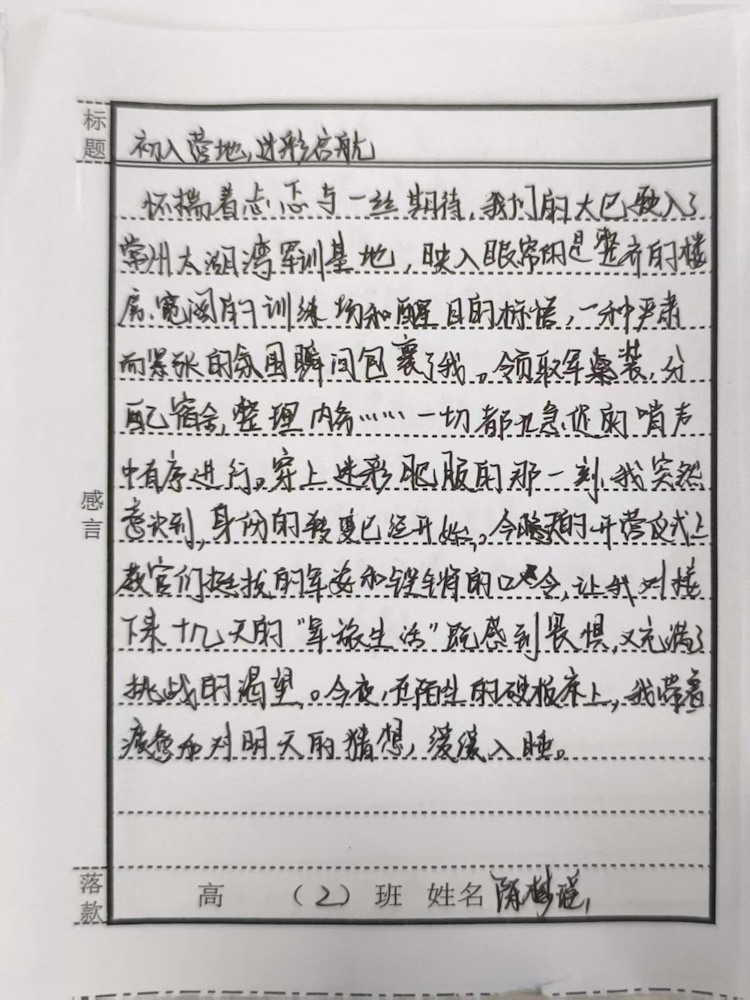 标题
初入营地,迷彩启航
怀揣着忐忑与一丝期待,我们的大巴驶入了
常州太湖湾军训基地,映入眼帘的是整齐的楼
房、宽阔的训练场和醒目的标语,一种严肃
而紧张的氛围瞬间包裹了我。领取军装,分
配宿舍,整理内务……一切都在急促的哨声
中有序进行。穿上迷彩服的那一刻,我突然
意识到,身份的转变已经开始。今晚的开营仪式上
教官们挺拔的军姿和铿锵的口令,让我对接
下来十几天的“军旅生活”既感到畏惧,又充满了
挑战的渴望。今夜,在陌生的硬板床上,我带着
疲惫和对明天的猜想,缓缓入睡。
感言
落款
高 (2)班 姓名 陈梦瑶